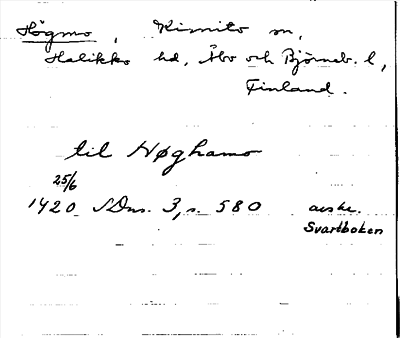 Högmo, Kimito sn,
Halikko hd, Åbo och Björneb. l,
Finland.
til Høghamo
25/6
1420 SDns. 3, s. 580 avskr.
Svartboken